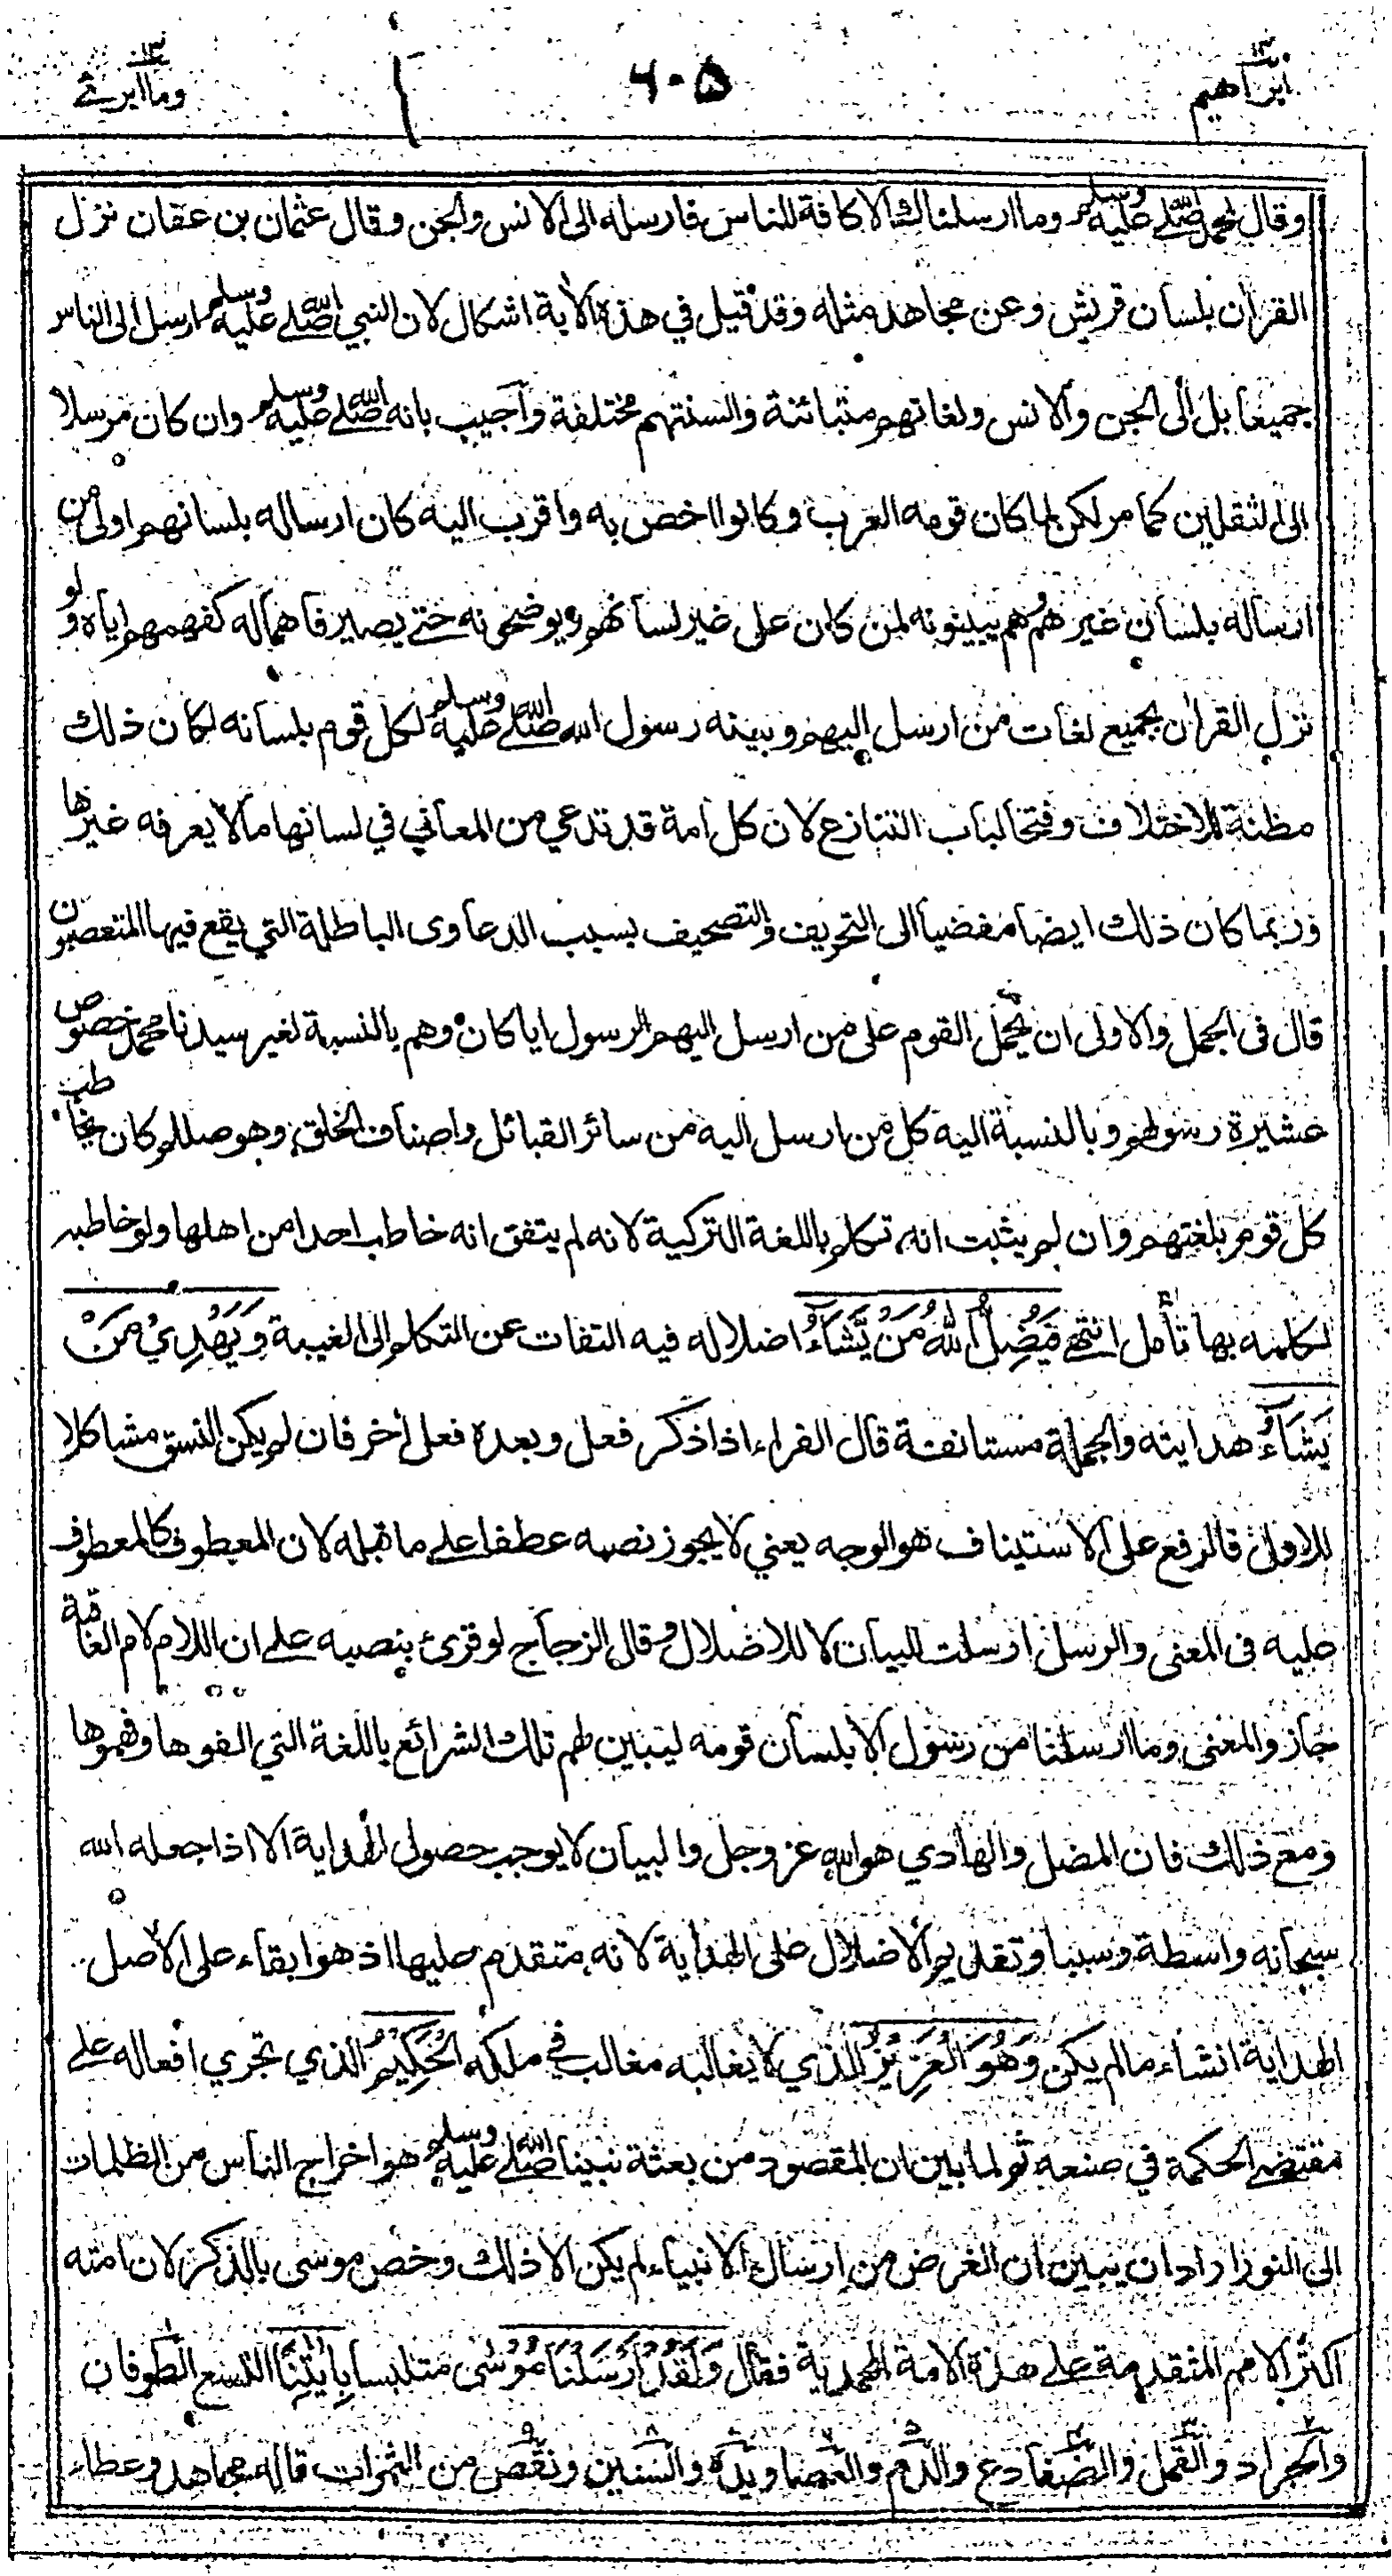 ابراهيم ١٣
٦٠٥
وما ابرئ ١٣
وقال لمحمد صلى الله عليه وسلم وما ارسلناك الا كافة للناس فارسله الى الانس والجن وقال عثمان بن عفان نزل
القرآن بلسان قريش وعن مجاهد مثله وقد قيل في هذه الآية اشكال لان النبي صلى الله عليه وسلم ارسل الى الناس
جميعا بل الى الجن والانس ولغاتهم متبائنة والسنتهم مختلفة وأجيب بانه صلى الله عليه وسلم وان كان مرسلا
الى الثقلين كما مر لكن لما كان قومه العرب وكانوا اخص به واقرب اليه كان ارساله بلسانهم اولى من
ارساله بلسان غيرهم وهم يبينونه لمن كان على غير لسانهم ويوضحونه حتى يصير فاهما له كفهمهم اياه ولو
نزل القرآن بجميع لغات من ارسل اليهم وبينه رسول الله صلى الله عليه وسلم لكل قوم بلسانه لكان ذلك
مظنة للاختلاف وفتحا لباب التنازع لان كل امة قد تدعي من المعاني في لسانها ما لا يعرفه غيرها
وربما كان ذلك ايضا مفضيا الى التحريف والتصحيف بسبب الدعاوى الباطلة التي يقع فيها المتعصبون
قال في الجمل والاولى ان يحمل القوم على من ارسل اليهم الرسول ايا كان وهم بالنسبة لغير سيدنا محمد خصوص
عشيرة رسولهم وبالنسبة اليه كل من ارسل اليه من سائر القبائل واصناف الخلق وهو صللم كان يخاطب
كل قوم بلغتهم وان لم يثبت انه تكلم باللغة التركية لانه لم يتفق انه خاطب احدا من اهلها ولو خاطبه
لكلمه بها تأمل انتهى فَيُضِلُّ اللهُ مَنْ يَّشَآءُ اضلاله فيه التفات عن التكلم الى الغيبة وَيَهْدِيْ مَنْ
يَشَآءُ هدايته والجملة مستانفة قال الفراء اذا ذكر فعل وبعده فعل أخر فان لم يكن النسق مشاكلا
للاول فالرفع على الاستيناف هو الوجه يعني لا يجوز نصبه عطفا على ما قبله لان المعطوف كالمعطوف
عليه في المعنى والرسل ارسلت للبيان لا للاضلال وقال الزجاج لو قرئ بنصبه على ان اللام لام العاقبة
جاز والمعنى وما ارسلنا من رسول الا بلسان قومه ليبين لهم تلك الشرائع باللغة التي الفوها وفهموها
ومع ذلك فان المضل والهادي هو الله عز وجل والبيان لا يوجب حصول الهداية الا اذا جعله الله
سبحانه واسطة وسببا وتقديم الاضلال على الهداية لانه متقدم عليها اذ هو ابقاء على الاصل
الهداية انشاء ما لم يكن وَهُوَ الْعَزِيْزُ الذي لا يغالبه مغالب في ملكه الْحَكِيْمُ الذي تجري افعاله على
مقتضى الحكمة في صنعه ثم لما بين ان المقصود من بعثة نبينا صلى الله عليه وسلم هو اخراج الناس من الظلمات
الى النور اراد ان يبين ان الغرض من ارسال الانبياء لم يكن الا ذلك وخص موسى بالذكر لان امته
اكثر الامم المتقدمة على هذه الامة المحمدية فقال وَلَقَدْ اَرْسَلْنَا مُوْسٰى متلبسا بِاٰيٰتِنَا التسع الطوفان
والجراد والقمل والضفادع والدم والعصا ويده والسنين ونقص من الثمرات قاله مجاهد وعطاء